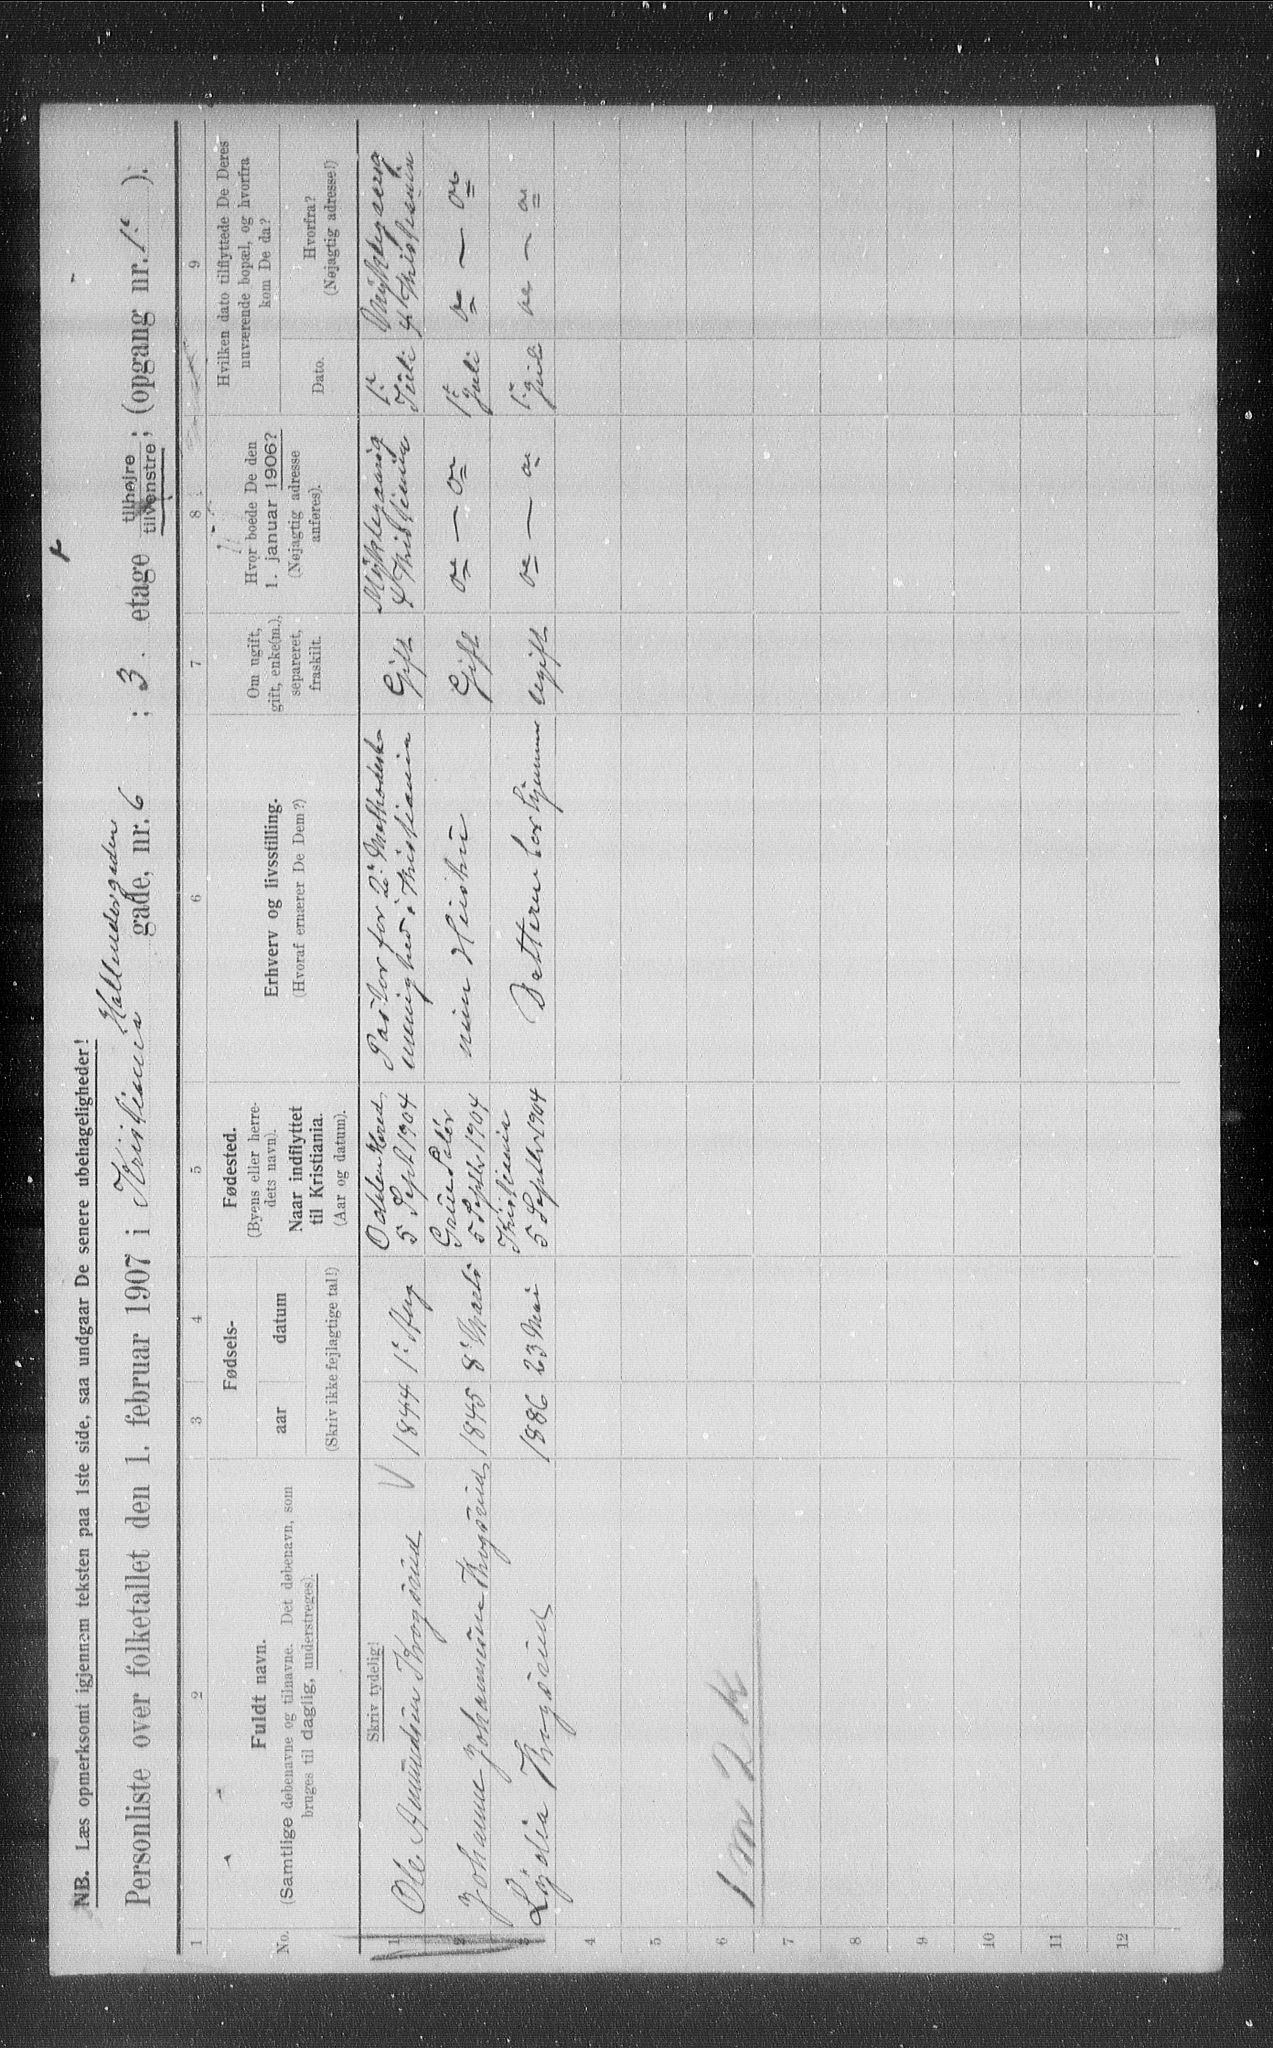 NB. Læs opmerksomt igjennem teksten paa 1ste side, saa undgaar De senere ubehageligheder!
Personliste over folketallet den 1. februar 1907 i Kristiania gade, nr. 6 ; 3. etage tilhøjre tilvenstre; (opgang nr. 1.).
1 2 3 4 5 6 7 8 9
No.
Fuldt navn.
(Samtlige døbenavne og tilnavne. Det døbenavn, som
bruges til daglig, understreges).
Fødsels-
aar datum
(Skriv ikke fejlagtige tal!)
Fødested.
(Byens eller herre-
dets navn).
Naar indflyttet
til Kristiania.
(Aar og datum).
Erhverv og livsstilling.
(Hvoraf ernærer De Dem?)
Om ugift,
gift, enke(m.),
separeret,
fraskilt.
Hvor boede De den
1. januar 1906?
(Nøjagtig adresse
anføres).
Hvilken dato tilflyttede De Deres
nuværende bopæl, og hvorfra
kom De da?
Dato.
Hvorfra?
(Nøjagtig adresse!)
Skriv tydelig!
1 Ole Amundsen 1844 1. Aug
5 Sept 1904
Pastor for 2. Methodist
menighed i Kristiania
Gift
1. Juli
2 Johanne Johannesen 1845 8. Marts
Grue Solør
5 Septbr 1904
min Hustru
Gift
1. Juli
3 Lydia 1886 23 Mai
Kristiania
5 Septbr 1904
Datteren hjemme
ugift
1. Juli
4
5
6
1 m 2 k
7
8
9
10
11
12